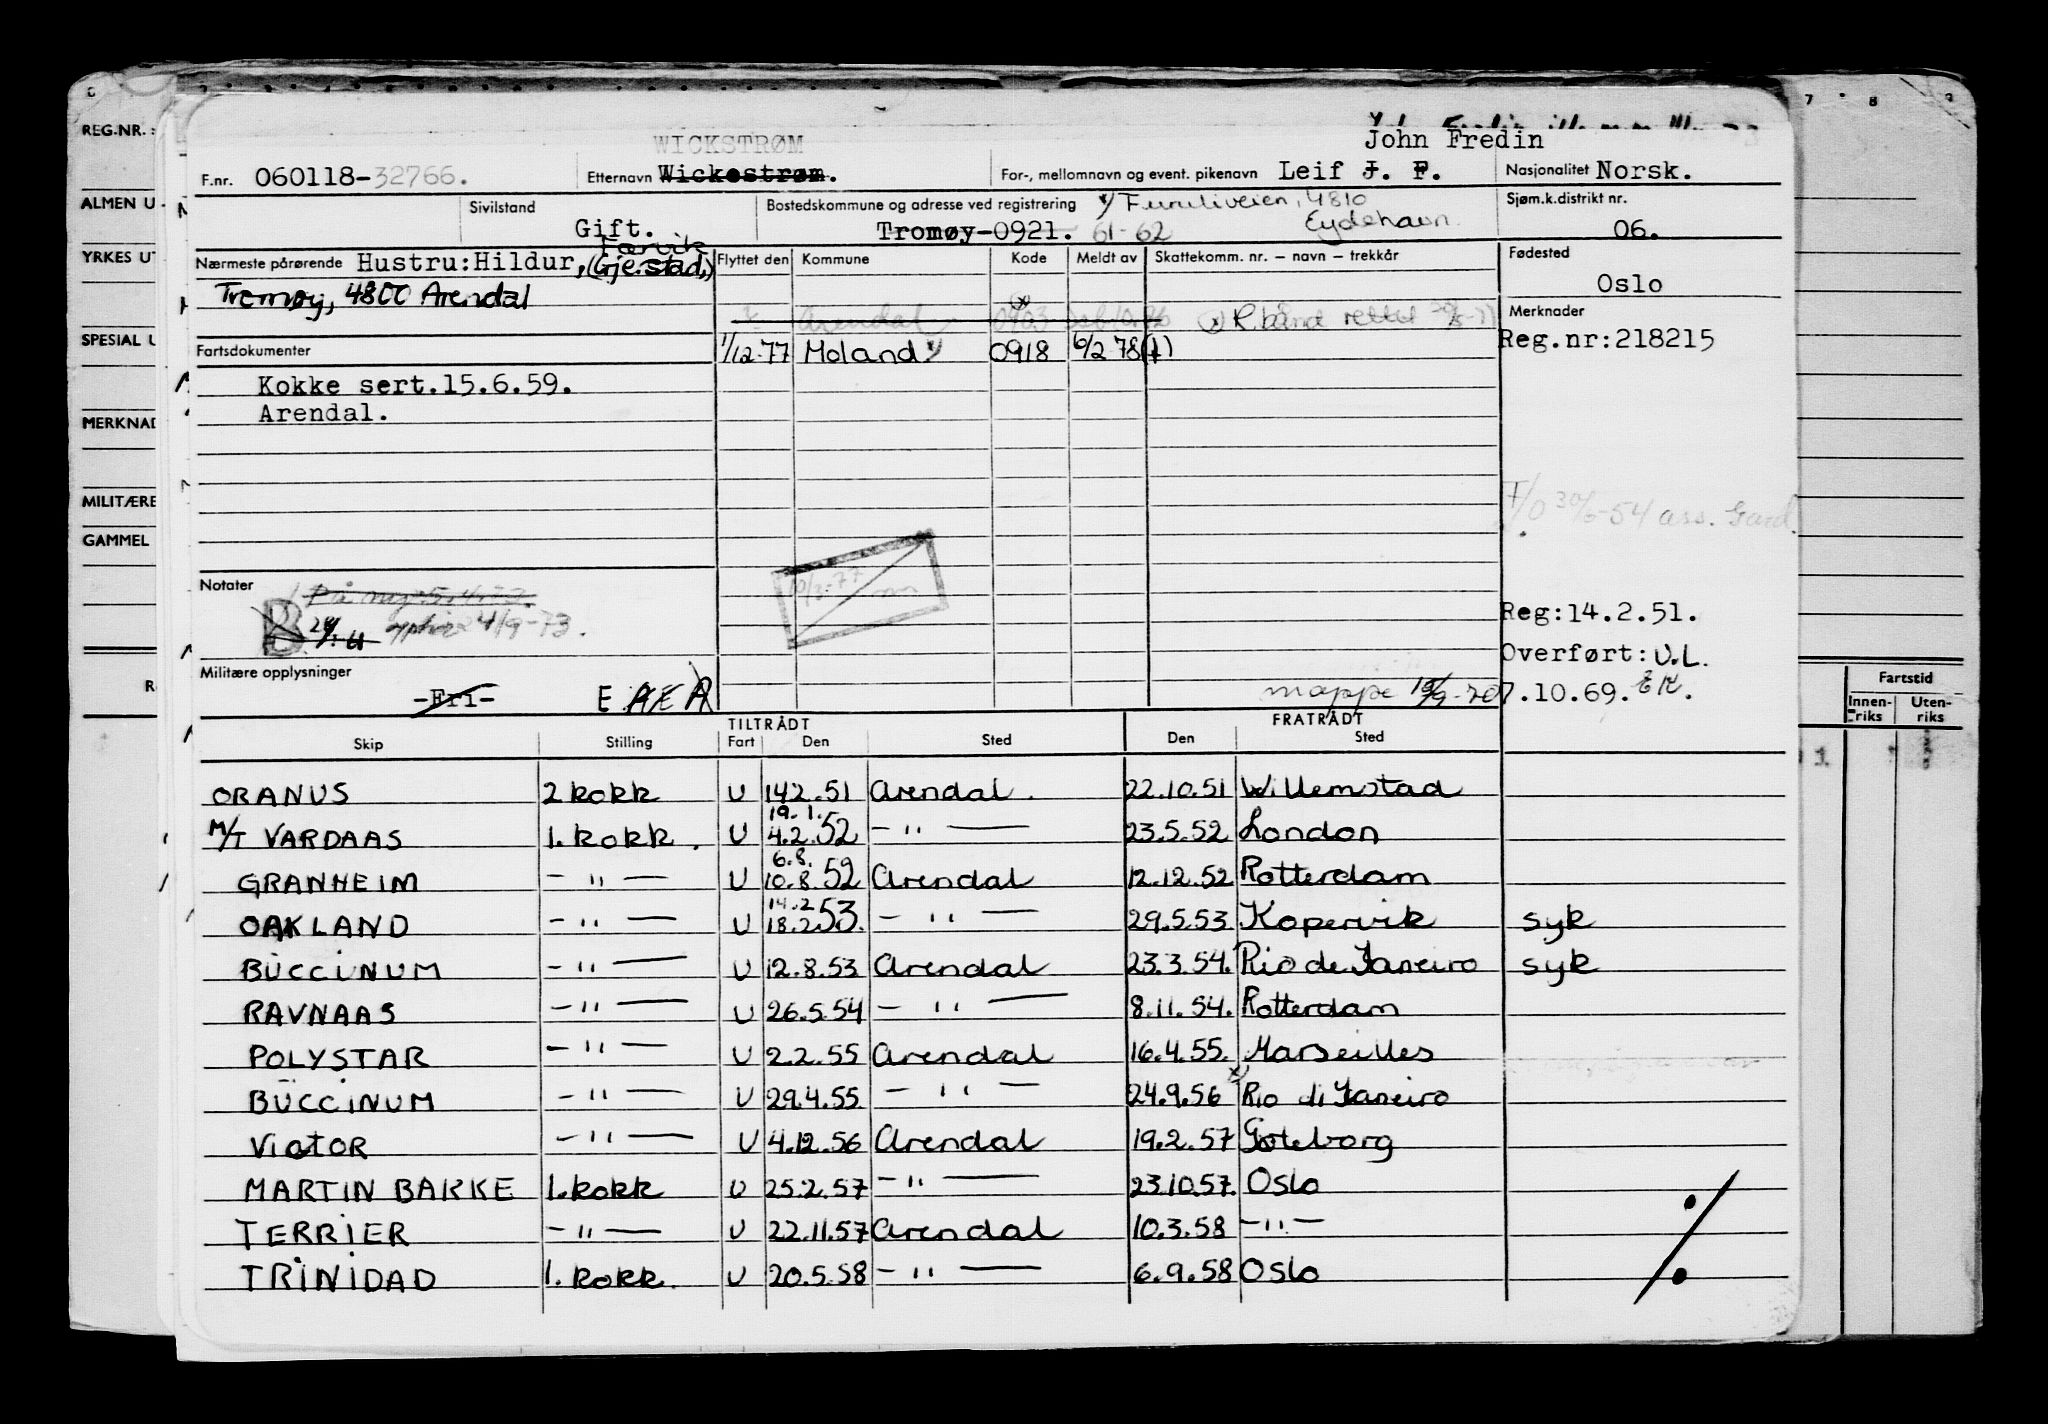 7 8 9
REG.NR.:
ALMEN U
YRKES UT
SPESIAL U
MERKNAD
MILITÆRE
GAMMEL
WICKSTRØM John Fredin
F.nr. 060118-32766. Etternavn Wickestrøm. For-, mellomnavn og event. pikenavn Leif J. F. Nasjonalitet Norsk.
Sivilstand Bostedskommune og adresse ved registrering x/ Furuliveien, 4810 Sjøm.k.distrikt nr.
Gift. Tromøy-0921. 61-62 Eydehavn 06.
Færvik
Nærmeste pårørende Hustru:Hildur, (Gjerstad,) Flyttet den Kommune Kode Meldt av Skattekomm. nr. – navn – trekkår Fødested
Tromøy, 4800 Arendal Oslo
Arendal 0903 Merknader
Fartsdokumenter 1/12-77 Moland x/ 0918 6/2 78 (f) Reg.nr:218215
Kokke sert.15.6.59.
Arendal.
F/O 30/6-54 ass. Gard.
Notater 10/3-77
24/9-73. Reg:14.2.51.
Militære opplysninger Overført:U.L.
-Fri- E A E A mappe 7.10.69.
TILTRÅDT FRATRÅDT Fartstid
Skip Stilling Fart Den Sted Den Sted Innen-riks Uten-riks
ORANUS 2 kokk U 14.2.51 Arendal. 22.10.51 Willemstad
19.1.
M/T VARDAAS 1. kokk. U 4.2.52 – " — 23.5.52 London
6.8.
GRANHEIM – " — U 10.8.52 Arendal 12.12.52 Rotterdam
14.2
OAKLAND – " — U 18.2.53. – " — 29.5.53 Kopervik syk
BUCCINUM – " — U 12.8.53 Arendal 23.3.54. Rio de Janeiro syk
RAVNAAS – " — U 26.5.54 – " — 8.11.54. Rotterdam
POLYSTAR – " — U 2.2.55 Arendal 16.4.55. Marseilles
BUCCINUM – " — U 29.4.55 – " — 24.9.56 x) Rio di Janeiro
ViatOR – " — U 4.12.56 Arendal 19.2.57 Gøteborg
MARTIN BAKKE 1. kokk U 25.2.57 – " — 23.10.57. Oslo
TERRIER – " — U 22.11.57 Arendal 10.3.58 – " –
TRINIDAD 1. kokk. U 20.5.58 – " — 6.9.58 Oslo